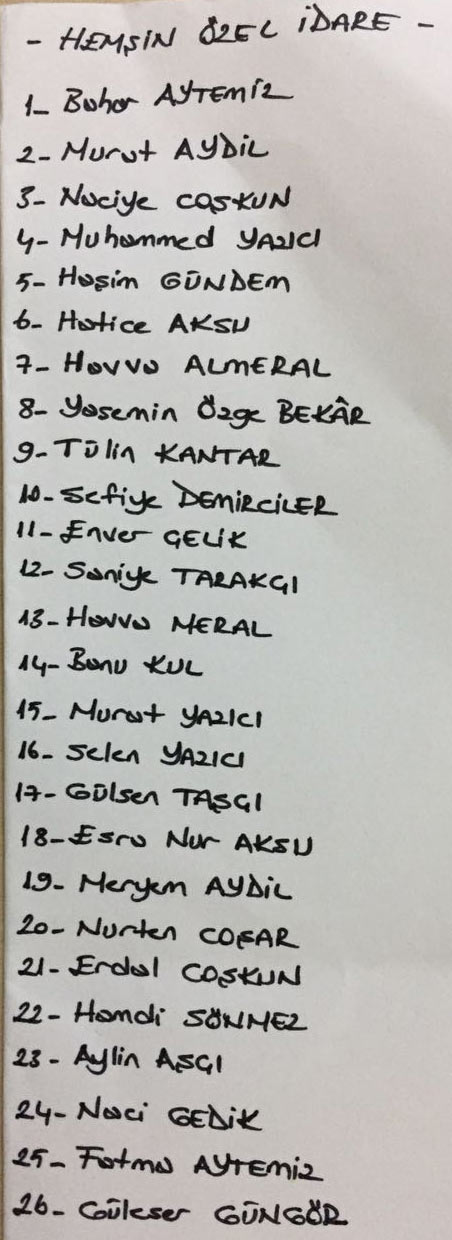 - HEMŞİN ÖZEL İDARE -
1- Bahar AYTEMİZ
2- Murat AYDİL
3- Naciye COŞKUN
4- Muhammed YAZICI
5- Haşim GÜNDEM
6- Hatice AKSU
7- Havva ALMERAL
8- Yasemin Özge BEKÂR
9- Tülin KANTAR
10- Sefiye DEMİRCİLER
11- Enver ÇELİK
12- Saniye TARAKÇI
13- Havva MERAL
14- Banu KUL
15- Murat YAZICI
16- Selen YAZICI
17- Gülsen TAŞÇI
18- Esra Nur AKSU
19- Meryem AYDİL
20- Nurten COŞAR
21- Erdal COŞKUN
22- Hamdi SÖNMEZ
23- Aylin AŞÇI
24- Naci GEDİK
25- Fatma AYTEMİZ
26- Güleser GÜNGÖR